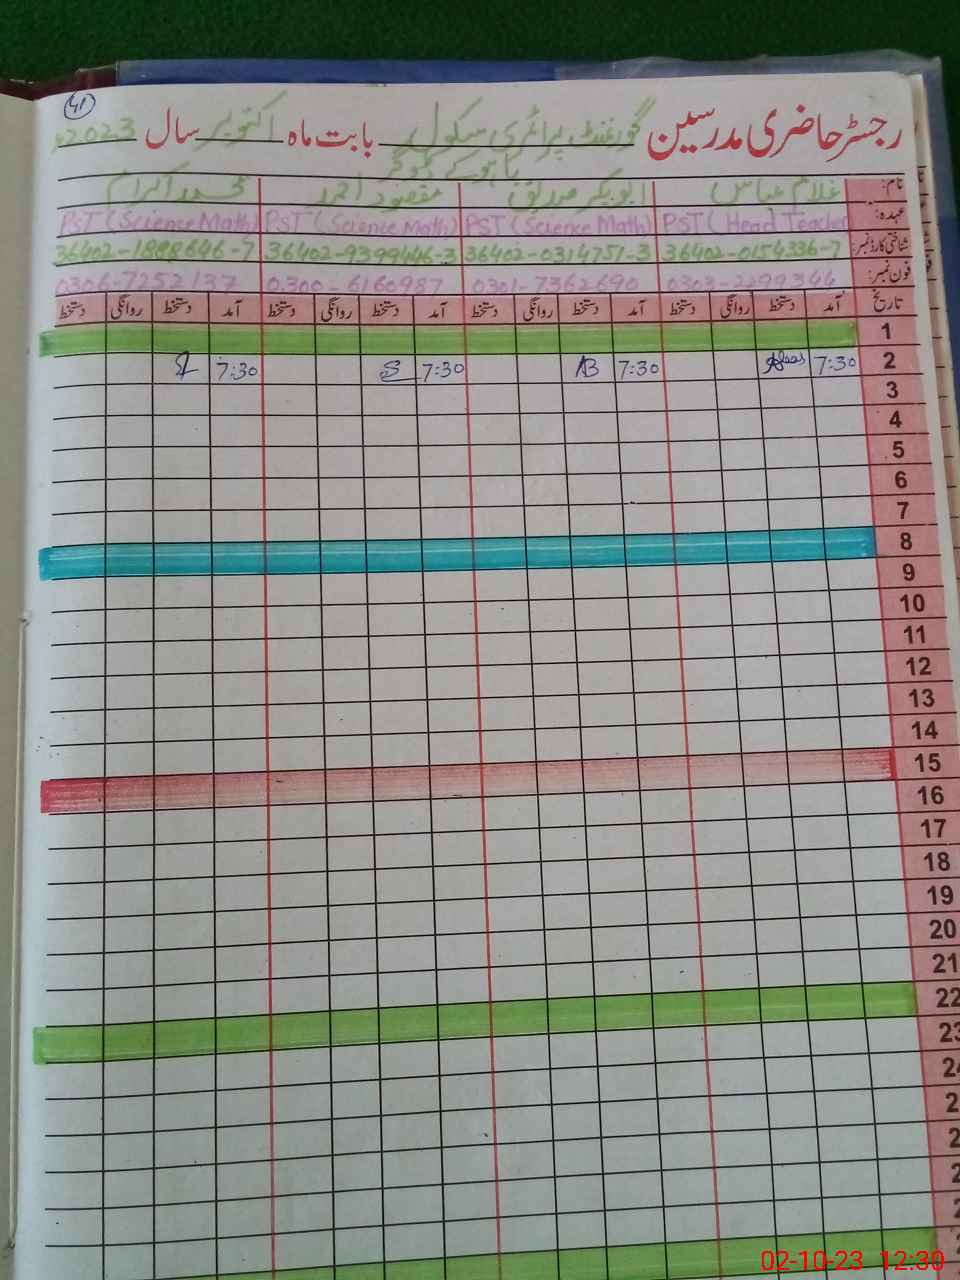 41
رجسٹر حاضری مدرسین گورنمنٹ پرائمری سکول بابت ماہ اکتوبر سال 2023ء
باہو کے ڈوگر
نام: غلام عباس ابوبکر صدیق مقصود احمد محمد اکرم
عہدہ: PST (Head Teacher PST (Science Math) PST (Science Math) PST (Science Math)
شناختی کارڈ نمبر: 36402-0154336-7 36402-0314751-3 36402-9399446-3 36402-1888646-7
فون نمبر: 0303-2299366 0301-7362690 0300-6160987 0306-7252137
تاریخ آمد دستخط روانگی دستخط آمد دستخط روانگی دستخط آمد دستخط روانگی دستخط آمد دستخط روانگی دستخط
1
2 7:30 Abbas 7:30 AB 7:30 7:30
3
4
5
6
7
8
9
10
11
12
13
14
15
16
17
18
19
20
21
22
23
02-10-23 12:30